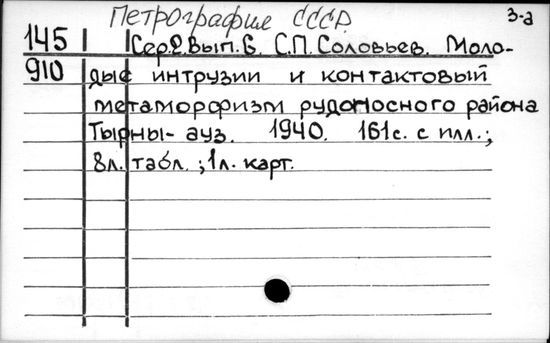 Петрография СССР.
3-а
145 Сер.2. Вып. 6. С.П. Соловьев. Моло-
910 дые интрузии и контактовый
метаморфизм рудоносного района
Тырны-ауз. 1940. 161с. с илл.;
8л. табл.; 1л. карт.